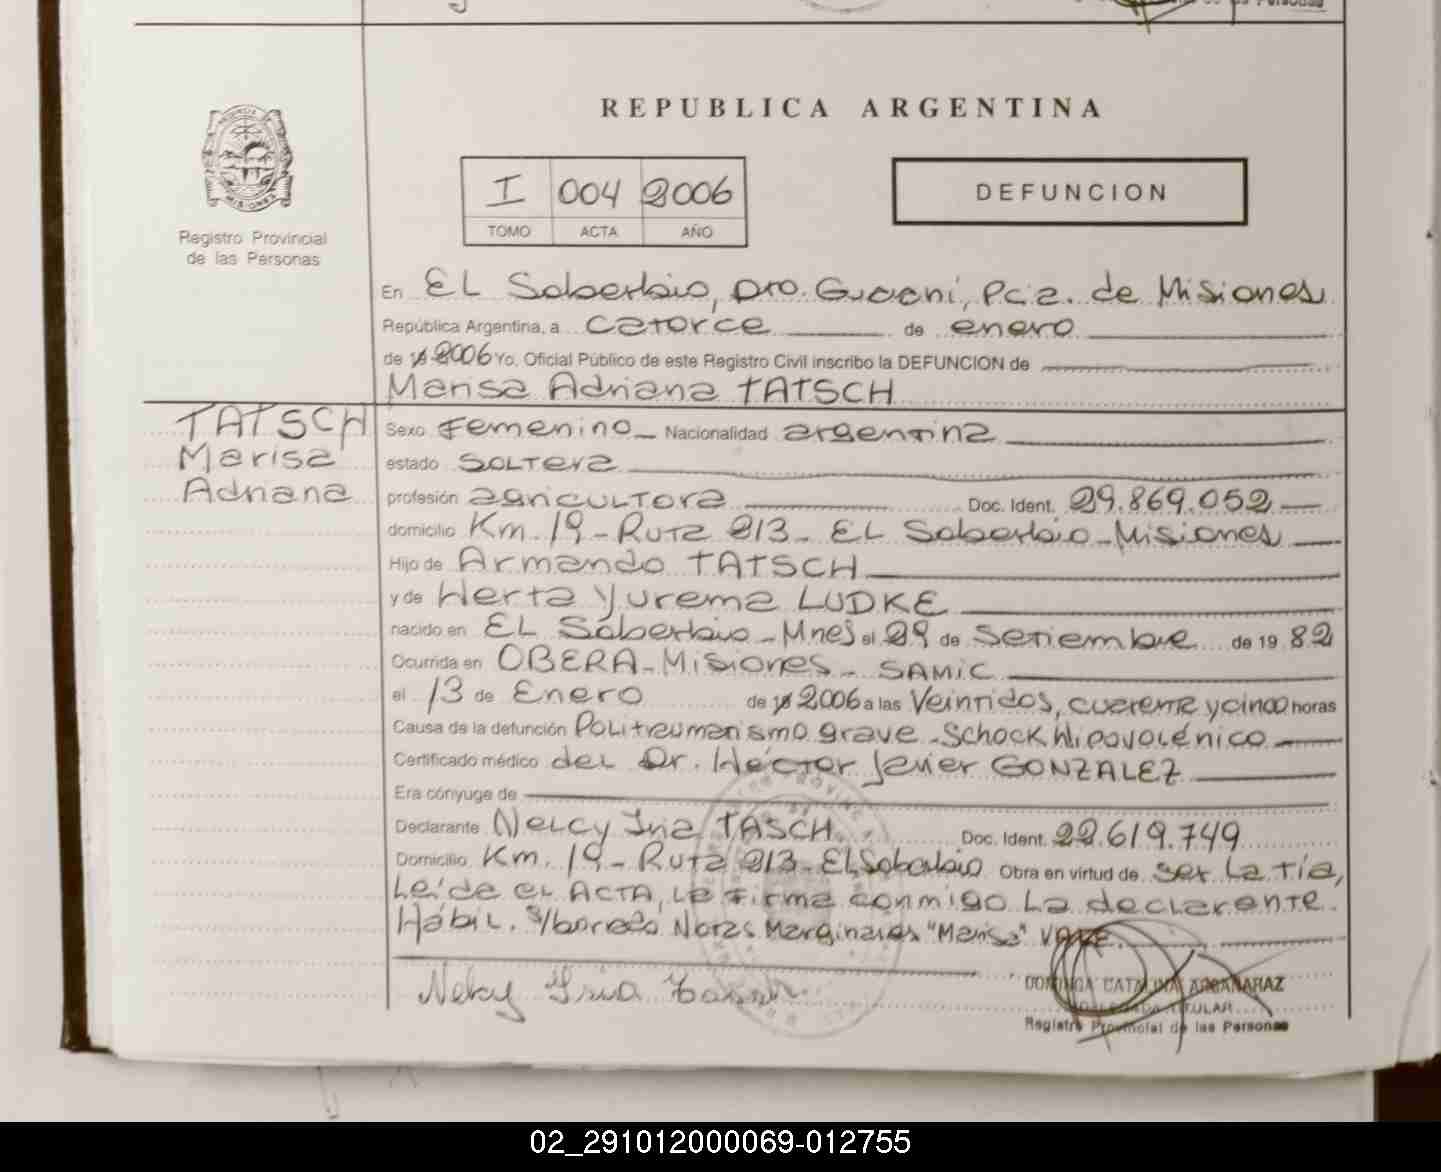 REPUBLICA ARGENTINA
I 004 2006
TOMO ACTA AÑO
DEFUNCION
Registro Provincial
de las Personas
En EL Soberbio, Dto. Guaraní, Pcia. de Misiones
República Argentina, a catorce de enero
de 2006 Yo. Oficial Público de este Registro Civil inscribo la DEFUNCION de
Marisa Adriana TATSCH
TATSCH
Marisa
Adriana
Sexo Femenino Nacionalidad argentina
estado soltera
profesión agricultora Doc. Ident. 29.869.052
domicilio Km. 19 - Ruta 213 - EL Soberbio - Misiones
Hijo de Armando TATSCH
y de Herta Yurema LUDKE
nacido en EL Soberbio - Mnes el 29 de setiembre de 19 82
Ocurrida en OBERA - Misiones - SAMIC
el 13 de Enero de 2006 a las Veintidos, cuarenta y cinco horas
Causa de la defunción Politraumatismo grave - Schock Hipovolénico
Certificado médico del Dr. Héctor Javier GONZALEZ
Era cónyuge de
Declarante Nelcy Iria TASCH Doc. Ident. 22.619.749
Domicilio Km. 19 - Ruta 213 - EL Soberbio Obra en virtud de ser la tía,
Leída el ACTA, la firma conmigo la declarante
Hábil. S/borrado Notas Marginales "Marisa" VALE.
Nelcy Iria
DOMINGA CATALINA ARGAÑARAZ
DELEGADA TITULAR
Registro Provincial de las Personas
02_291012000069-012755